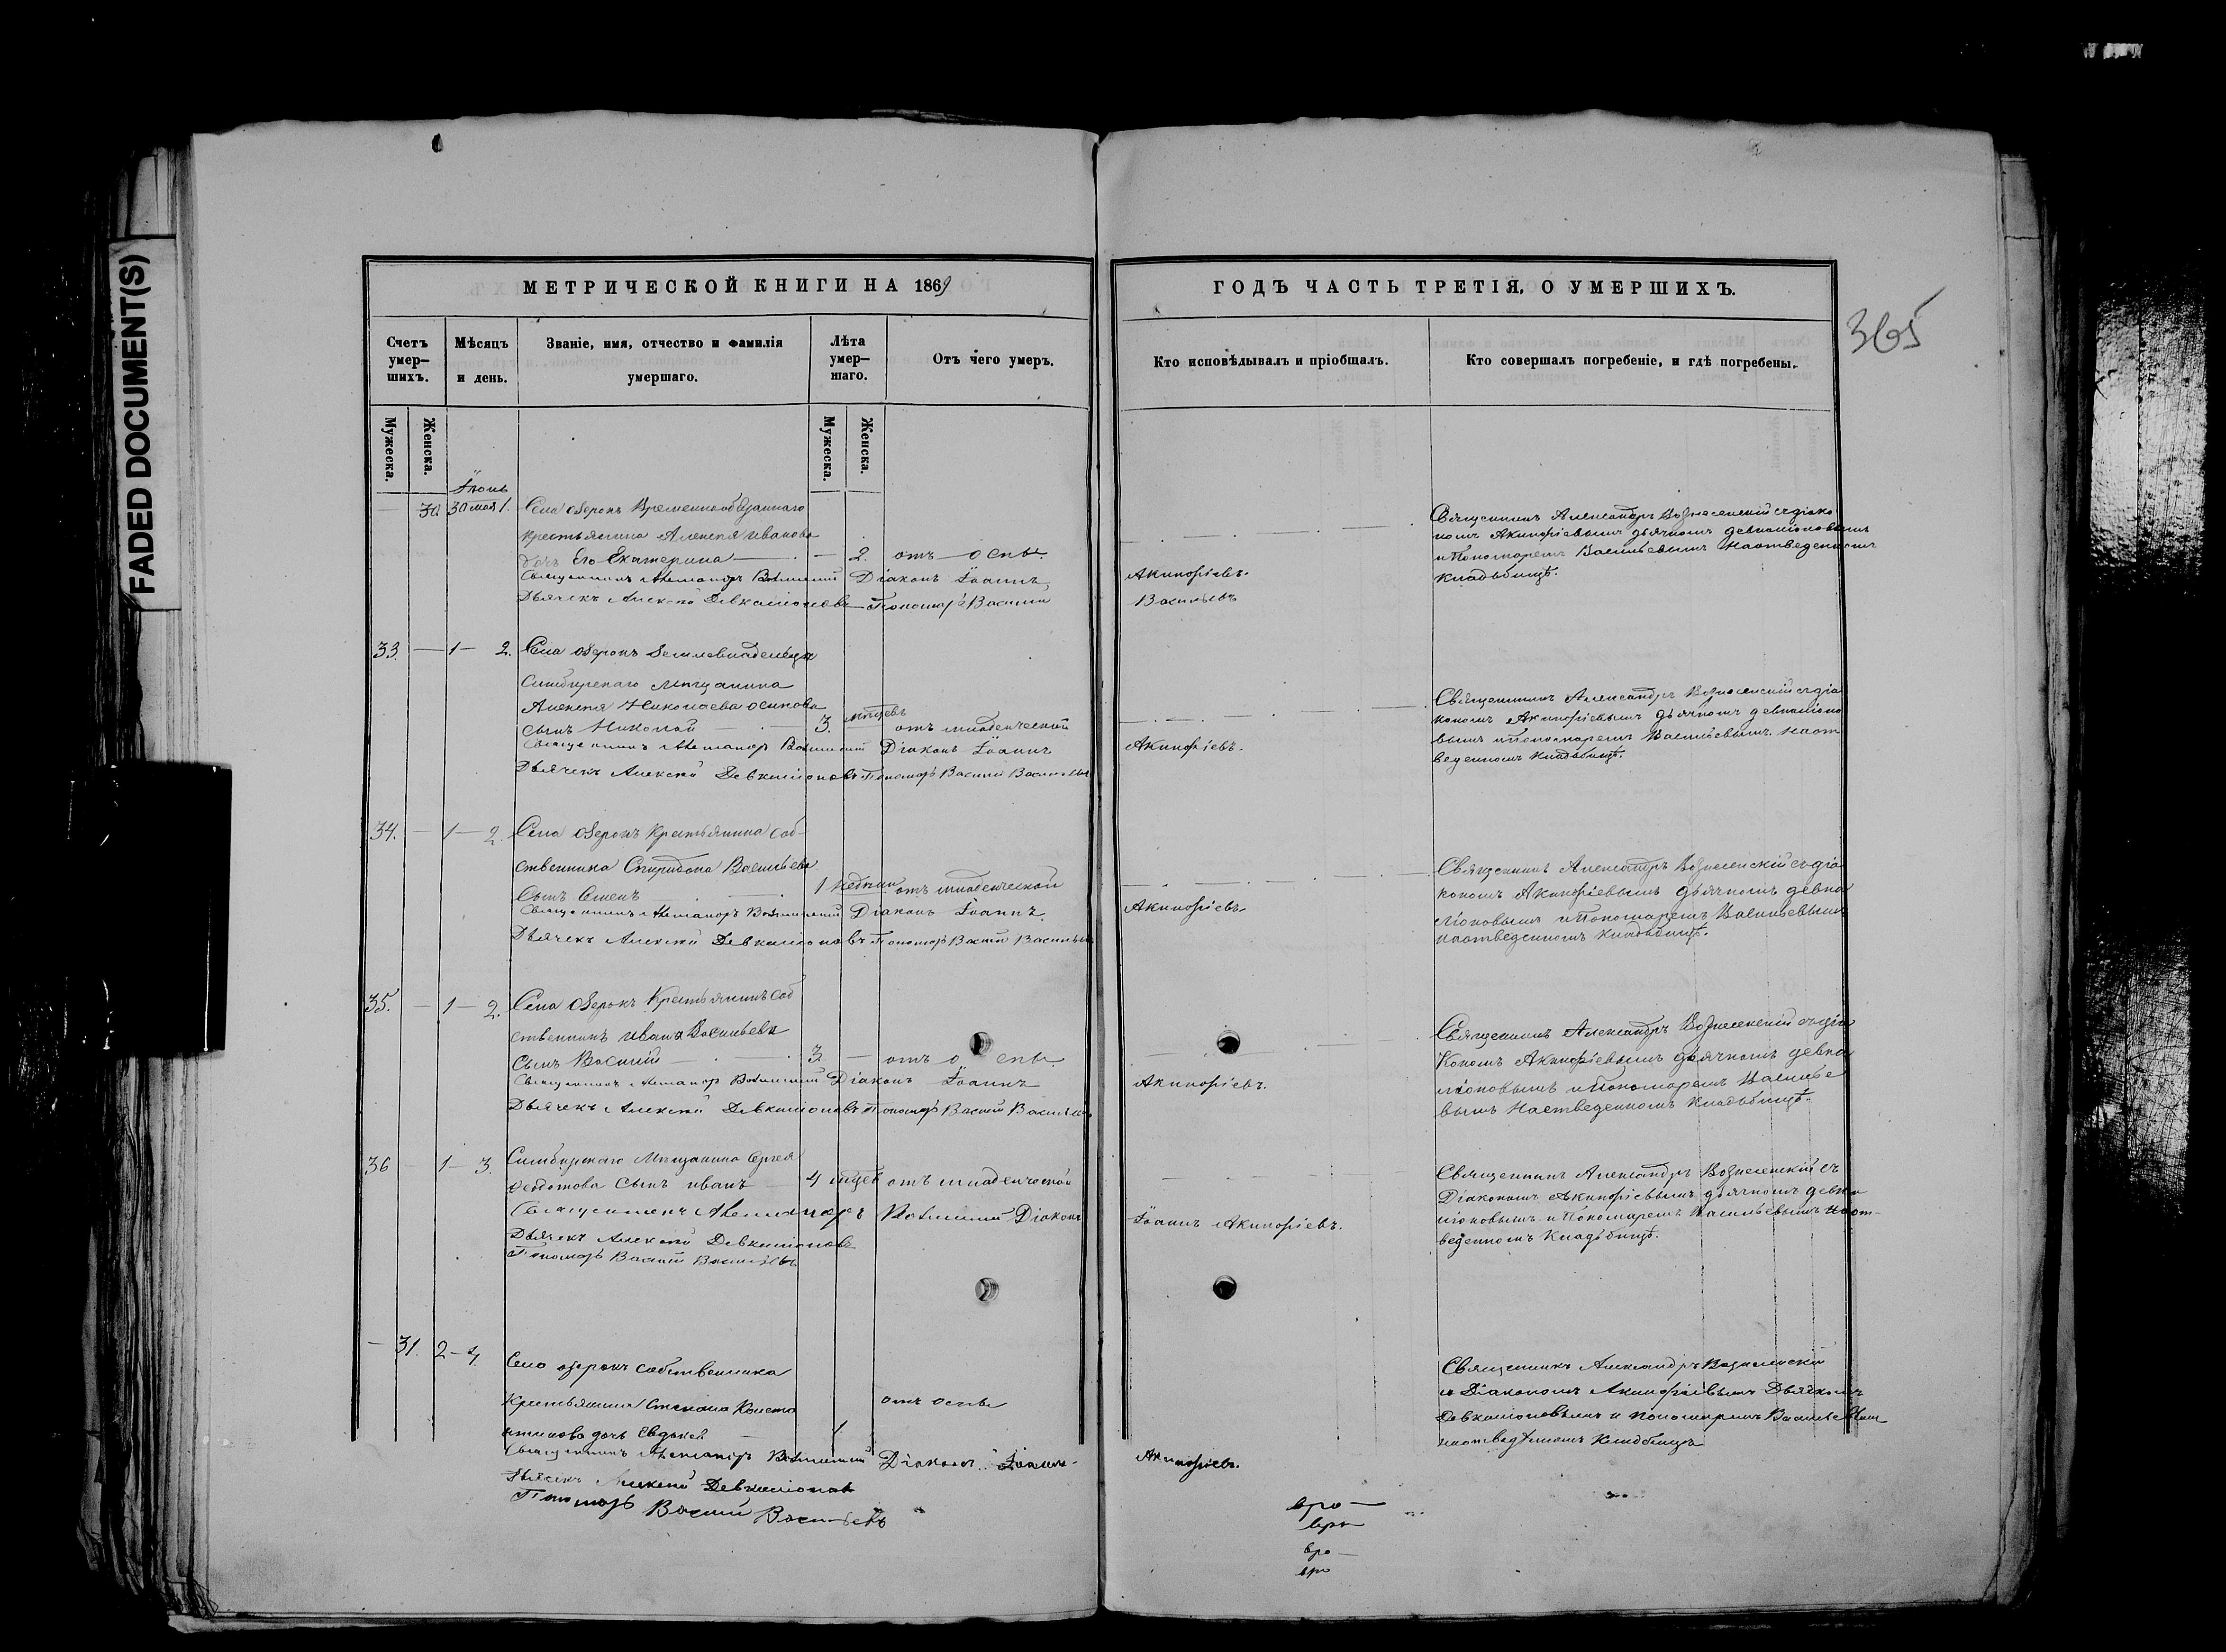 FADED DOCUMENT(S)
МЕТРИЧЕСКОЙ КНИГИ НА 1869
Счетъ умер-шихъ.
Мѣсяцъ и день.
Званіе, имя, отчество и фамилія умершаго.
Лѣта умер-шаго.
Отъ чего умеръ.
Мужеска.
Женска.
Мужеска.
Женска.
Іюнь
30 30 мая 1. Села Озерокъ Временнообязаннаго
крестьянина Алексѣя Иванова
дочь Его Екатерина — 2. отъ оспы.
Священникъ Александръ Вознесенскій Діаконъ Іоаннъ
Дьячекъ Алексѣй Девкаліоновъ Пономарь Василій
33. — 1 — 2. Села Озерокъ Землевладельца
Симбирскаго Мѣщанина
Алексѣя Николаева Осипова
сынъ Николай — 3. мѣсяцевъ отъ младенческой
Священникъ Александръ Вознесенскій Діаконъ Іоаннъ
Дьячекъ Алексѣй Девкаліоновъ Пономарь Василій Васильевъ
34. — 1 — 2. Села Озерокъ Крестьянина соб-
ственника Спиридона Васильева
Сынъ Семенъ — 1 недели отъ младенческой
Священникъ Александръ Вознесенскій Діаконъ Іоаннъ
Дьячекъ Алексѣй Девкаліоновъ Пономарь Василій Васильевъ
35. — 1 — 2. Села Озерокъ Крестьянинъ соб
ственникъ Ивана Васильева
Сынъ Василій — 3 — отъ оспы
Священникъ Александръ Вознесенскій Діаконъ Іоаннъ
Дьячекъ Алексѣй Девкаліоновъ Пономарь Василій Васильевъ
36 — 1 — 3. Симбирскаго Мѣщанина Сергея
Федотова Сынъ Иванъ — 4 отъ младенческой
Священникъ Александръ Вознесенскій Діаконъ
Дьячекъ Алексѣй Девкаліоновъ
Пономарь Василій Васильевъ
— 31. 2 — 4. Село озерокъ собственника
Крестьянина Степана Конста
нтинова дочь Евдокея — 1 отъ оспы
Священникъ Александръ Вознесенскій Діаконъ Іоаннъ
Дьячекъ Алексѣй Девкаліоновъ
Пономарь Василій Васильевъ
ГОДЪ ЧАСТЬ ТРЕТІЯ, О УМЕРШИХЪ.
365
Кто исповѣдывалъ и пріобщалъ.
Кто совершалъ погребеніе, и гдѣ погребены.
Священникъ Александръ Вознесенскій съ діако
номъ Акинфіевымъ дьячкомъ девкаліоновымъ
и Пономаремъ Васильевымъ На отведенномъ
кладбищѣ.
Акинфіевъ.
Васильевъ
Священникъ Александръ Вознесенскій съ діа
кономъ Акинфіевымъ дьячкомъ девкаліоно
вымъ и Пономаремъ Васильевымъ. На от
веденномъ кладбищѣ.
Акинфіевъ.
Священникъ Александръ Вознесенскій съ діа
кономъ Акинфіевымъ дьячкомъ девка
ліоновымъ и Пономаремъ Васильевымъ
на отведенномъ Кладбищѣ.
Акинфіевъ
Священникъ Александръ Вознесенскій съ діа
Кономъ Акинфіевымъ дьячкомъ девка
ліоновымъ и Пономаремъ Василье
вымъ На отведенномъ Кладбищѣ.
Акинфіевъ.
Священникъ Александръ Вознесенскій съ
Діакономъ Акинфіевымъ дьячкомъ девка
ліоновымъ и Пономаремъ Васильевымъ На от-
веденномъ Кладбищѣ.
Іоаннъ Акинфіевъ.
Священникъ Александръ Вознесенскій
съ Діакономъ Акинфіевымъ Дьячкомъ
Девкаліоновымъ и пономаремъ Васильевым
на отведенномъ Кладбищѣ
Акинфіевъ.
вро
вро
вро
вро